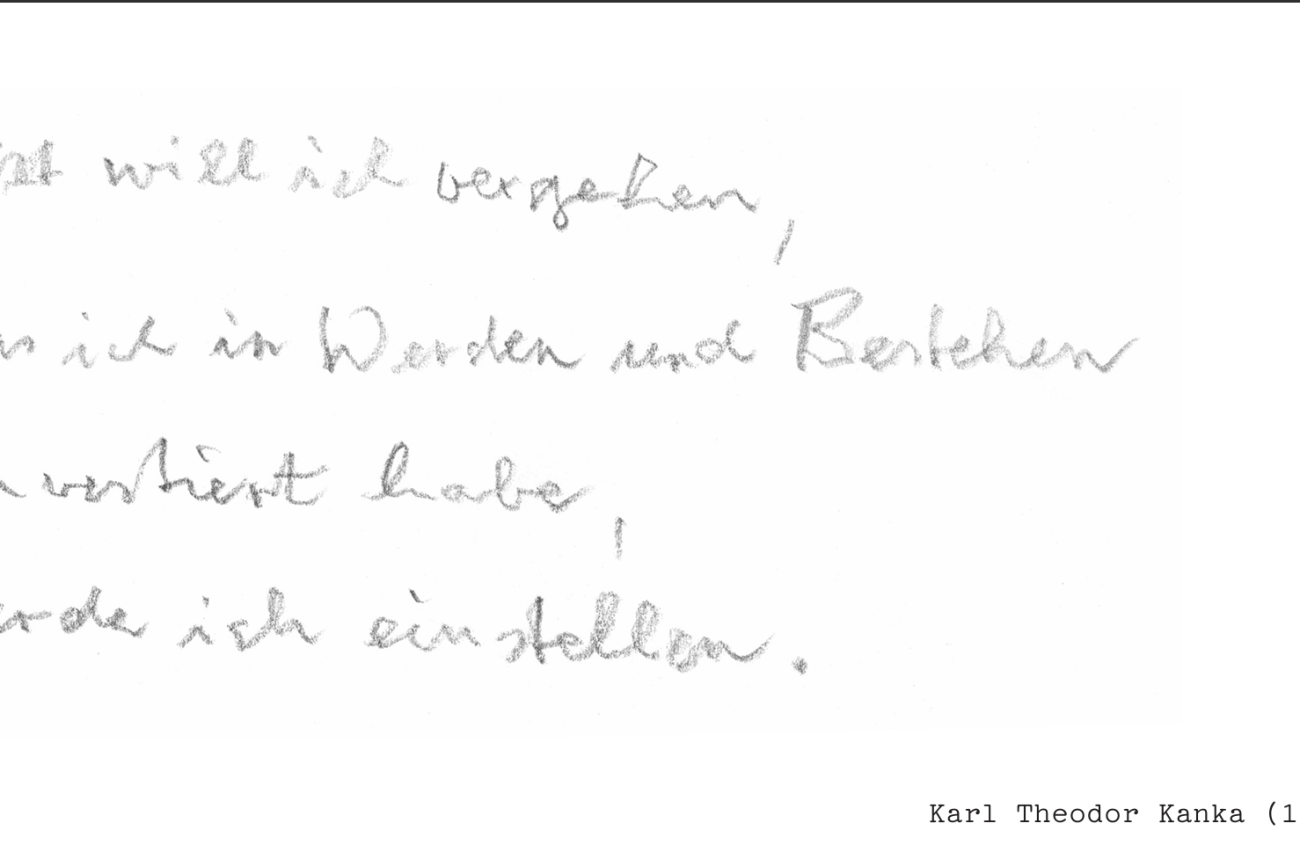 will ich vergehen,
ich in Werden und Bestehen
investiert habe,
werde ich einstellen.
Karl Theodor Kanka (1